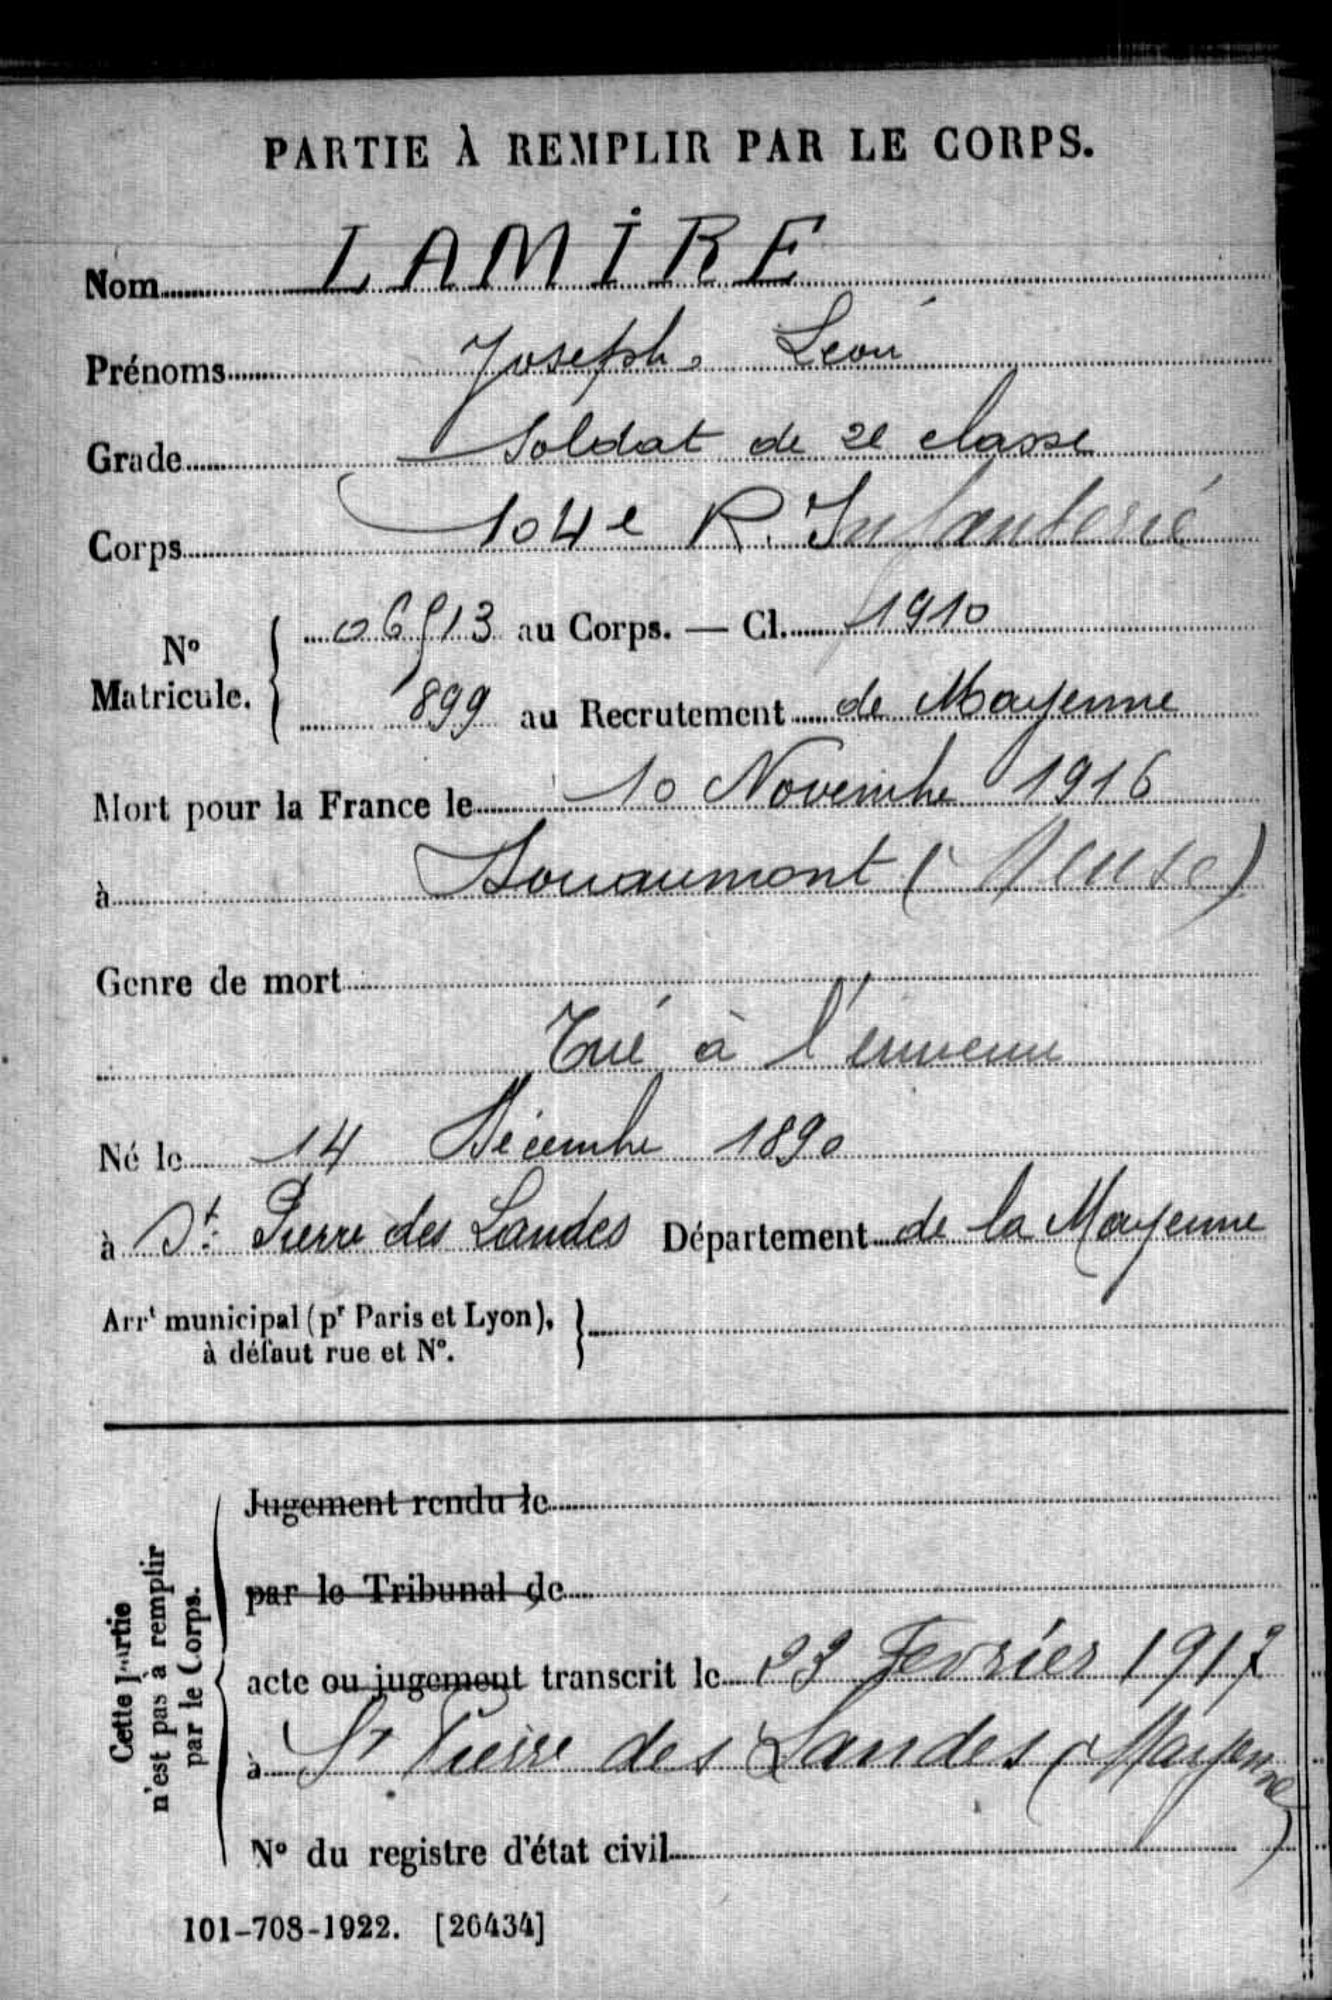 PARTIE À REMPLIR PAR LE CORPS.
Nom LAMIRE
Prénoms Joseph Léon
Grade Soldat de 2e classe
Corps 104e R. Infanterie
N° Matricule. { 06513 au Corps. — Cl. 1910
899 au Recrutement de Mayenne
Mort pour la France le 10 Novembre 1916
à Douaumont (Meuse)
Genre de mort
Tué à l'ennemi
Né le 14 Décembre 1890
à St. Pierre des Landes Département de la Mayenne
Arrt municipal (pr Paris et Lyon), }
à défaut rue et N°.
Cette partie
n'est pas à remplir
par le Corps.
Jugement rendu le
par le Tribunal de
acte ou jugement transcrit le 23 Fevrier 1917
à St Pierre des Landes (Mayenne)
N° du registre d'état civil
101-708-1922. [26434]